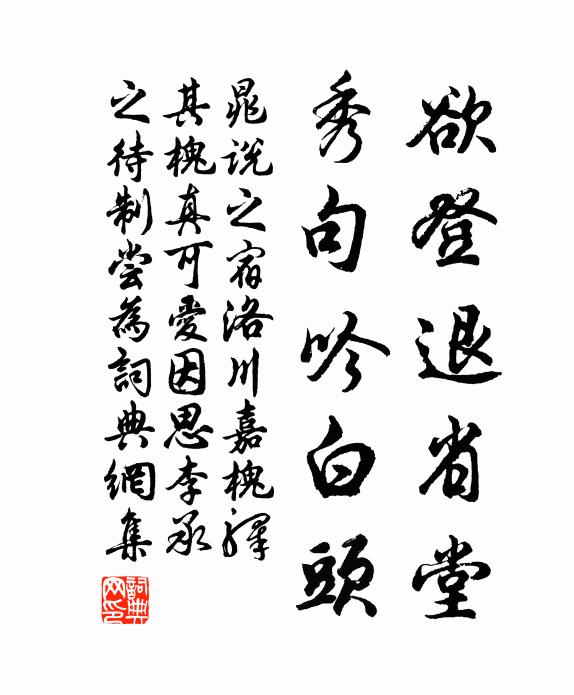 欲登退省堂
秀句吟白頭
晁說之宿洛川嘉槐驛
其槐真可愛因思李承
之待制嘗為詞典網集
詞典
网印